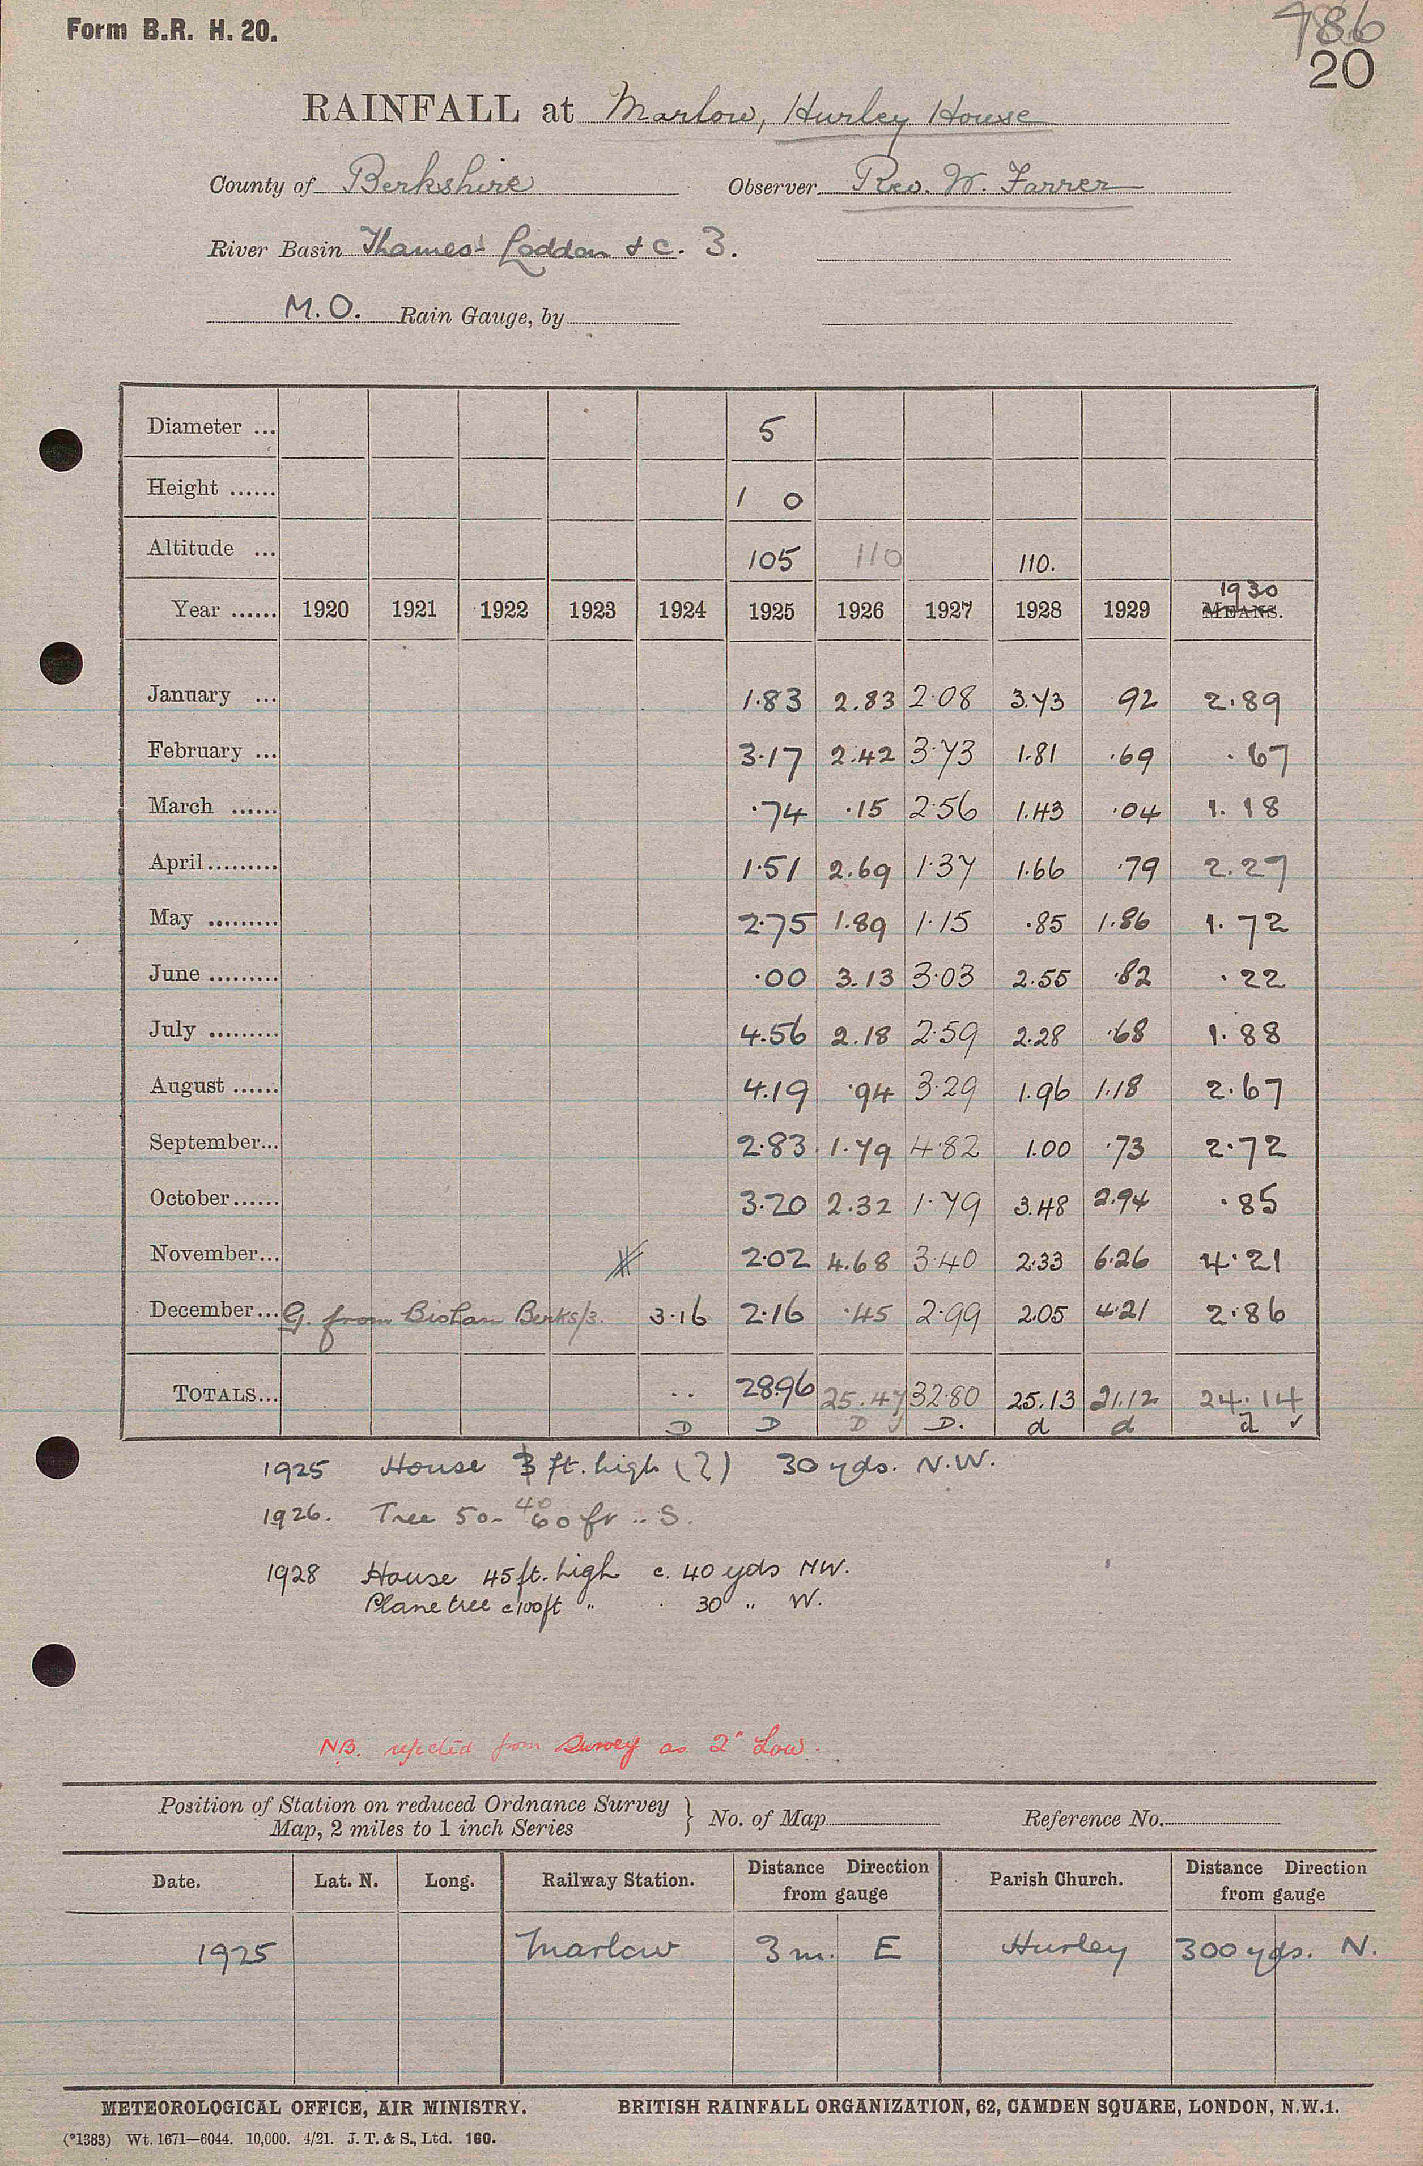 Form B.R. H. 20.
786
20
RAINFALL at Marlow, Hurley House
County of Berkshire Observer Rev. W. Farrer
River Basin Thames Loddon & c. 3.
M.O. Rain Gauge, by
Diameter ... 5
Height ...... 1 0
Altitude ... 105 110 110.
Year ...... 1920 1921 1922 1923 1924 1925 1926 1927 1928 1929 MEANS. 1930
January ... 1.83 2.83 2.08 3.73 92 2.89
February ... 3.17 2.42 3.73 1.81 .69 .67
March ...... .74 .15 2.56 1.43 .04 1.18
April......... 1.51 2.69 1.37 1.66 .79 2.27
May ......... 2.75 1.89 1.15 .85 1.86 1.72
June ......... .00 3.13 3.03 2.55 .82 .22
July ......... 4.56 2.18 2.59 2.28 .68 1.88
August ...... 4.19 .94 3.29 1.96 1.18 2.67
September... 2.83 1.79 4.82 1.00 .73 2.72
October...... 3.20 2.32 1.79 3.48 2.94 .85
November... 2.02 4.68 3.40 2.33 6.26 4.21
December... G. from Bisham Berks/3. 3.16 2.16 .45 2.99 2.05 4.21 2.86
TOTALS... .. 28.96 25.47 32.80 25.13 21.12 24.14
D D D D. d d d ✓
1925 House ft. high (?) 30 yds. N.W.
1926. Tree 50- 40 60 ft .. S.
1928 House 45 ft. high c. 40 yds NW.
Plane tree c100ft " 30 " W.
NB. rejected from Survey as 2" Low.
Position of Station on reduced Ordnance Survey Map, 2 miles to 1 inch Series } No. of Map Reference No.
Date. Lat. N. Long. Railway Station. Distance Direction from gauge Parish Church. Distance Direction from gauge
1925 Marlow 3 m. E Hurley 300 yds. N.
METEOROLOGICAL OFFICE, AIR MINISTRY. BRITISH RAINFALL ORGANIZATION, 62, CAMDEN SQUARE, LONDON, N.W.1.
(*1383) Wt. 1671—6044. 10,000. 4/21. J. T. & S., Ltd. 160.